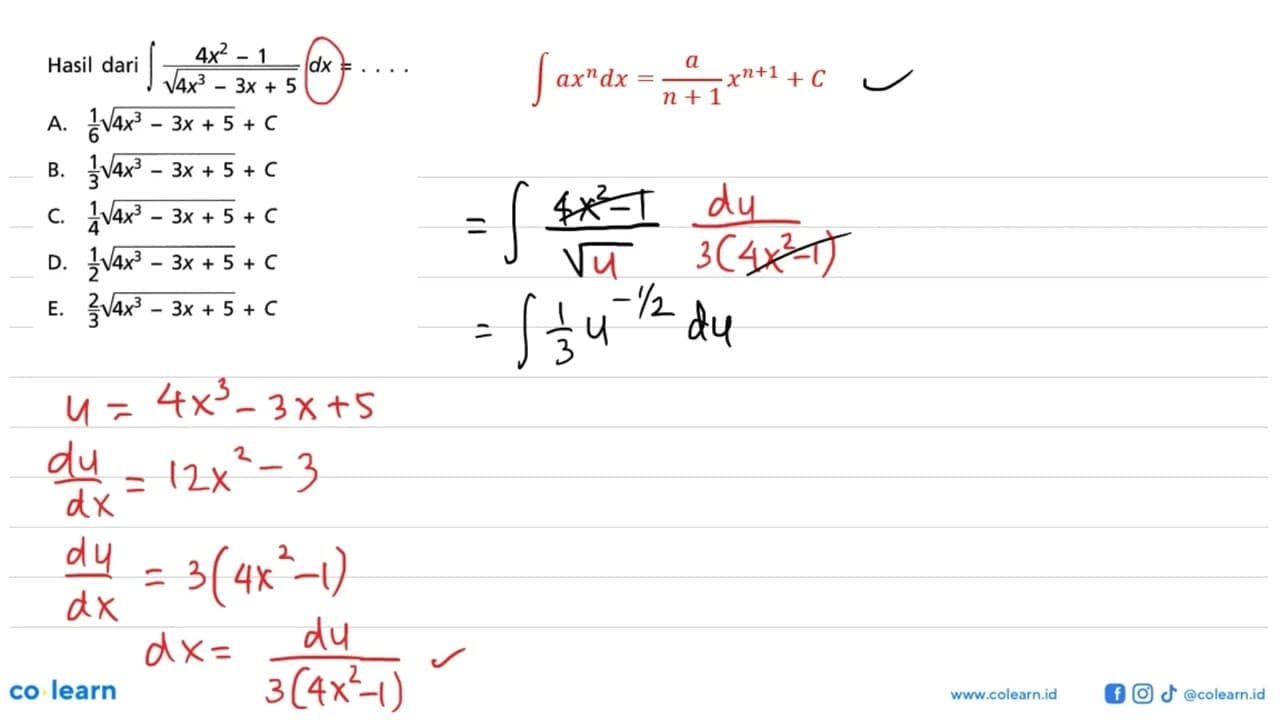 Hasil dari ∫ (4x² – 1)/√(4x³ – 3x + 5) dx = . . . .
A. 1/6 √(4x³ – 3x + 5) + C
B. 1/3 √(4x³ – 3x + 5) + C
C. 1/4 √(4x³ – 3x + 5) + C
D. 1/2 √(4x³ – 3x + 5) + C
E. 2/3 √(4x³ – 3x + 5) + C
∫ axⁿ dx = a/(n + 1) xⁿ⁺¹ + C ✓
= ∫ (4x² – 1)/√u du/(3(4x² – 1))
= ∫ 1/3 u^(–1/2) du
u = 4x³ – 3x + 5
du/dx = 12x² – 3
du/dx = 3(4x² – 1)
dx = du/(3(4x² – 1)) ✓
co learn
www.colearn.id
@colearn.id